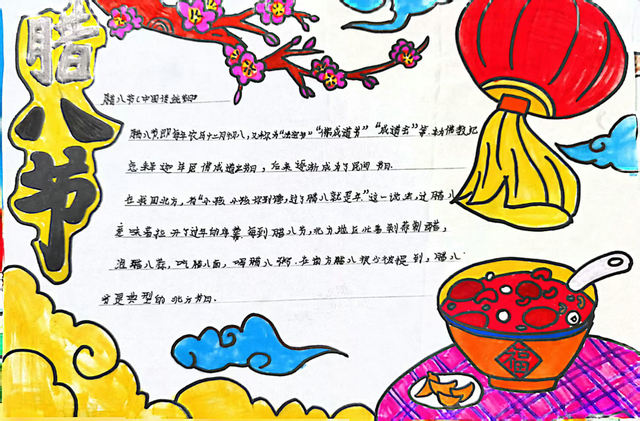 腊八节
腊八节(中国传统节日)
腊八节,即每年农历十二月初八,又称为“法宝节”“佛成道节”“成道会”等。本为佛教纪
念释迦牟尼佛成道之节日,后来逐渐成为了民间节日。
在我国北方,有“小孩小孩你别馋,过了腊八就是年”这一说法,过腊八
意味着拉开了过年的序幕。每到腊八节,北方地区忙着剥蒜制醋,
泡腊八蒜,吃腊八面,喝腊八粥。在南方腊八很少被提到,腊八
节是典型的北方节日。
福